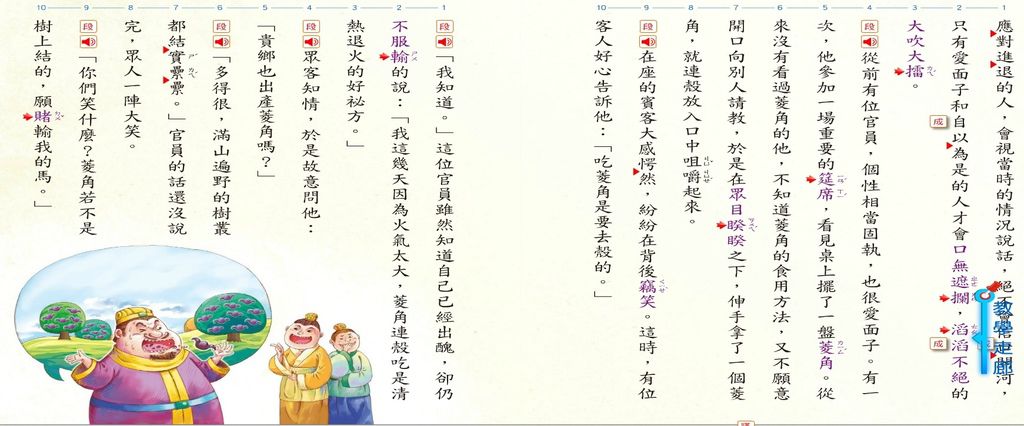 1
應對進退的人，會視當時的情況說話，絕不會開河，
2
只有愛面子和自以為是的人才會口無遮攔，滔滔不絕的
成
成
3
大吹大擂。
4
段
從前有位官員，個性相當固執，也很愛面子。有一
5
次，他參加一場重要的筵席，看見桌上擺了一盤菱角。從
6
來沒有看過菱角的他，不知道菱角的食用方法，又不願意
7
開口向別人請教，於是在眾目睽睽之下，伸手拿了一個菱
8
角，就連殼放入口中咀嚼起來。
9
段
在座的賓客大感愕然，紛紛在背後竊笑。這時，有位
10
客人好心告訴他：「吃菱角是要去殼的。」
教學走廊
1
段
「我知道。」這位官員雖然知道自己已經出醜，卻仍
2
不服輸的說：「我這幾天因為火氣太大，菱角連殼吃是清
3
熱退火的好祕方。」
4
段
眾客知情，於是故意問他：
5
「貴鄉也出產菱角嗎？」
6
段
「多得很，滿山遍野的樹叢
7
都結實纍纍。」官員的話還沒說
8
完，眾人一陣大笑。
9
段
「你們笑什麼？菱角若不是
10
樹上結的，願賭輸我的馬。」